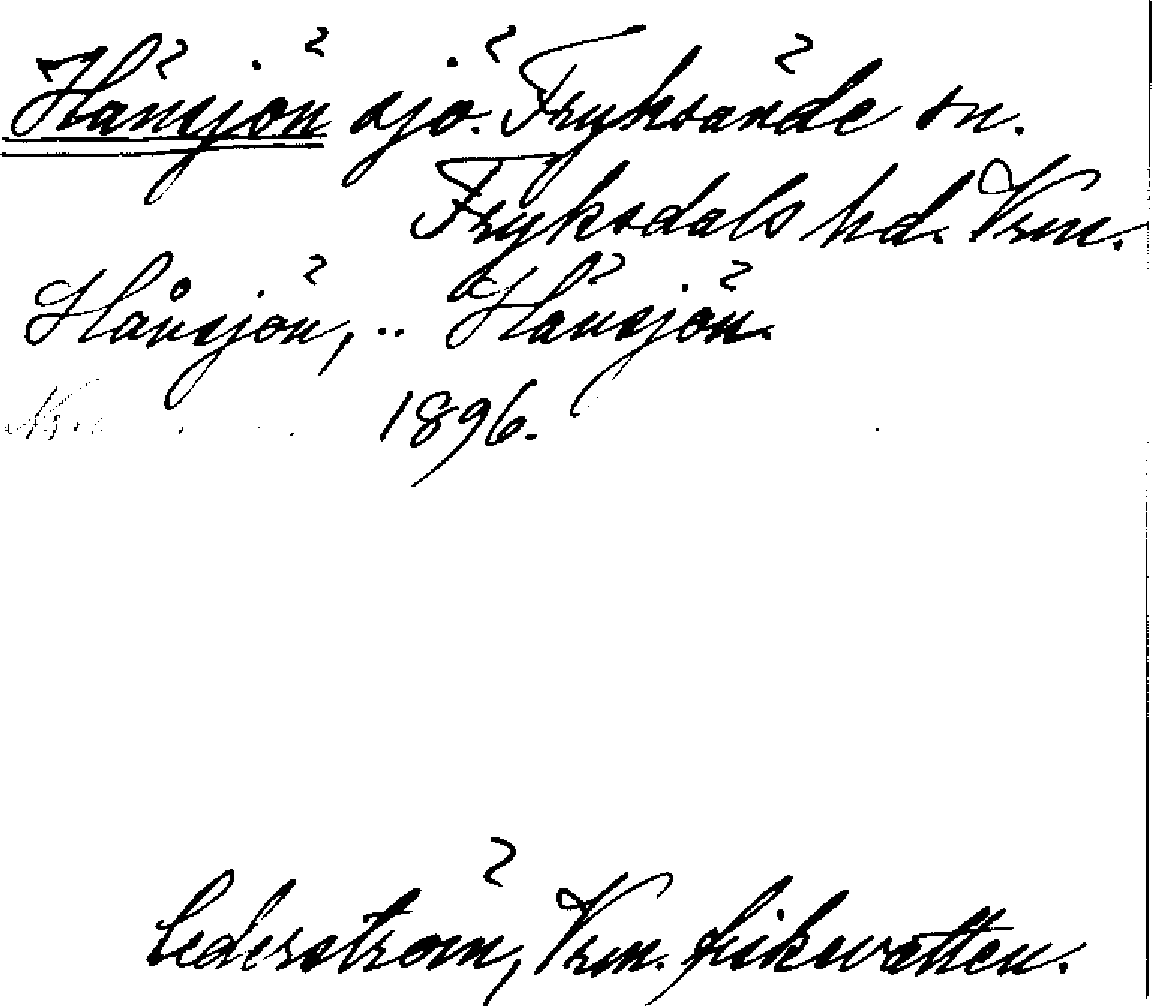 Hänsjön sjö. Fryksände sn.
Fryksdals hd. Vrm.
Hånsjön, .. Hänsjön.
1896.
Cederström, Vrm. fiskevatten.